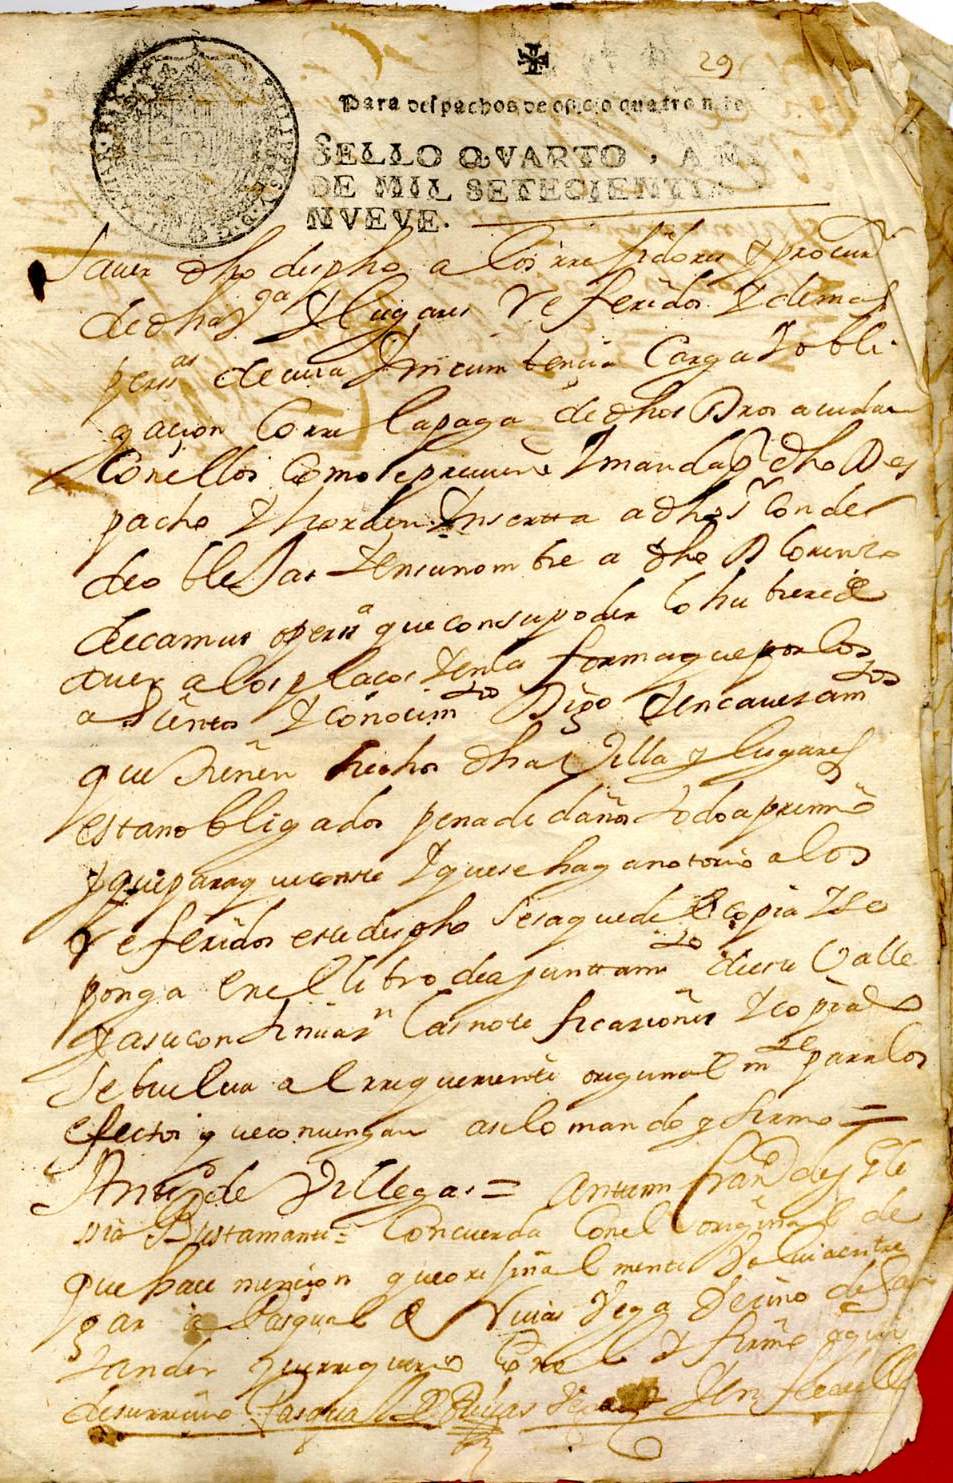 29
Para despachos de oficio quatro mrs
SELLO QVARTO, AÑ
DE MIL SETECIENT
NVEVE.
saver dho despho a los rrexidores y procur
de dha Va y lugares referidos y demas
perss as de cuia Yncumbencia Carga Y obli
gaçion Corre la paga de dhos Dros acudan
Con ellos Como se previene Y manda Por dho Des
pacho Y horden Ynserta a dho Sr Conde
de obles Y en su nombre a dho D Lorenzo
de camus o perssa que con su poder lo hubiere de
aver a los plaços Y en la forma que por los
asientos Y conocimtos Digo Y encavesamtos
que tienen hechos dha Villa y lugares
estan obligados pena de daños todo apremio
y que para que conste Y que se haga notorio a los
referidos este despho se saque de el copia Y se
ponga en el libro de ajuntamto de este Valle
Y a su continuasn las notificasiones Y copia
se buelva al rrequeriente original mte para los
efectos que convengan asi lo mando y firmo =
Anto de Villegas = Antemi Franco de Ygle
ssia Bustamante = Concuerda Con el original de
que hace mençion que orijinal mente Volvi a entre
gar a Pasqual de Rivas Vega Veçino de San
tander que rrequirio Con el Y firmo aqui
de su rreciuo Pasqual de Rivas Vega Y en fee de ello